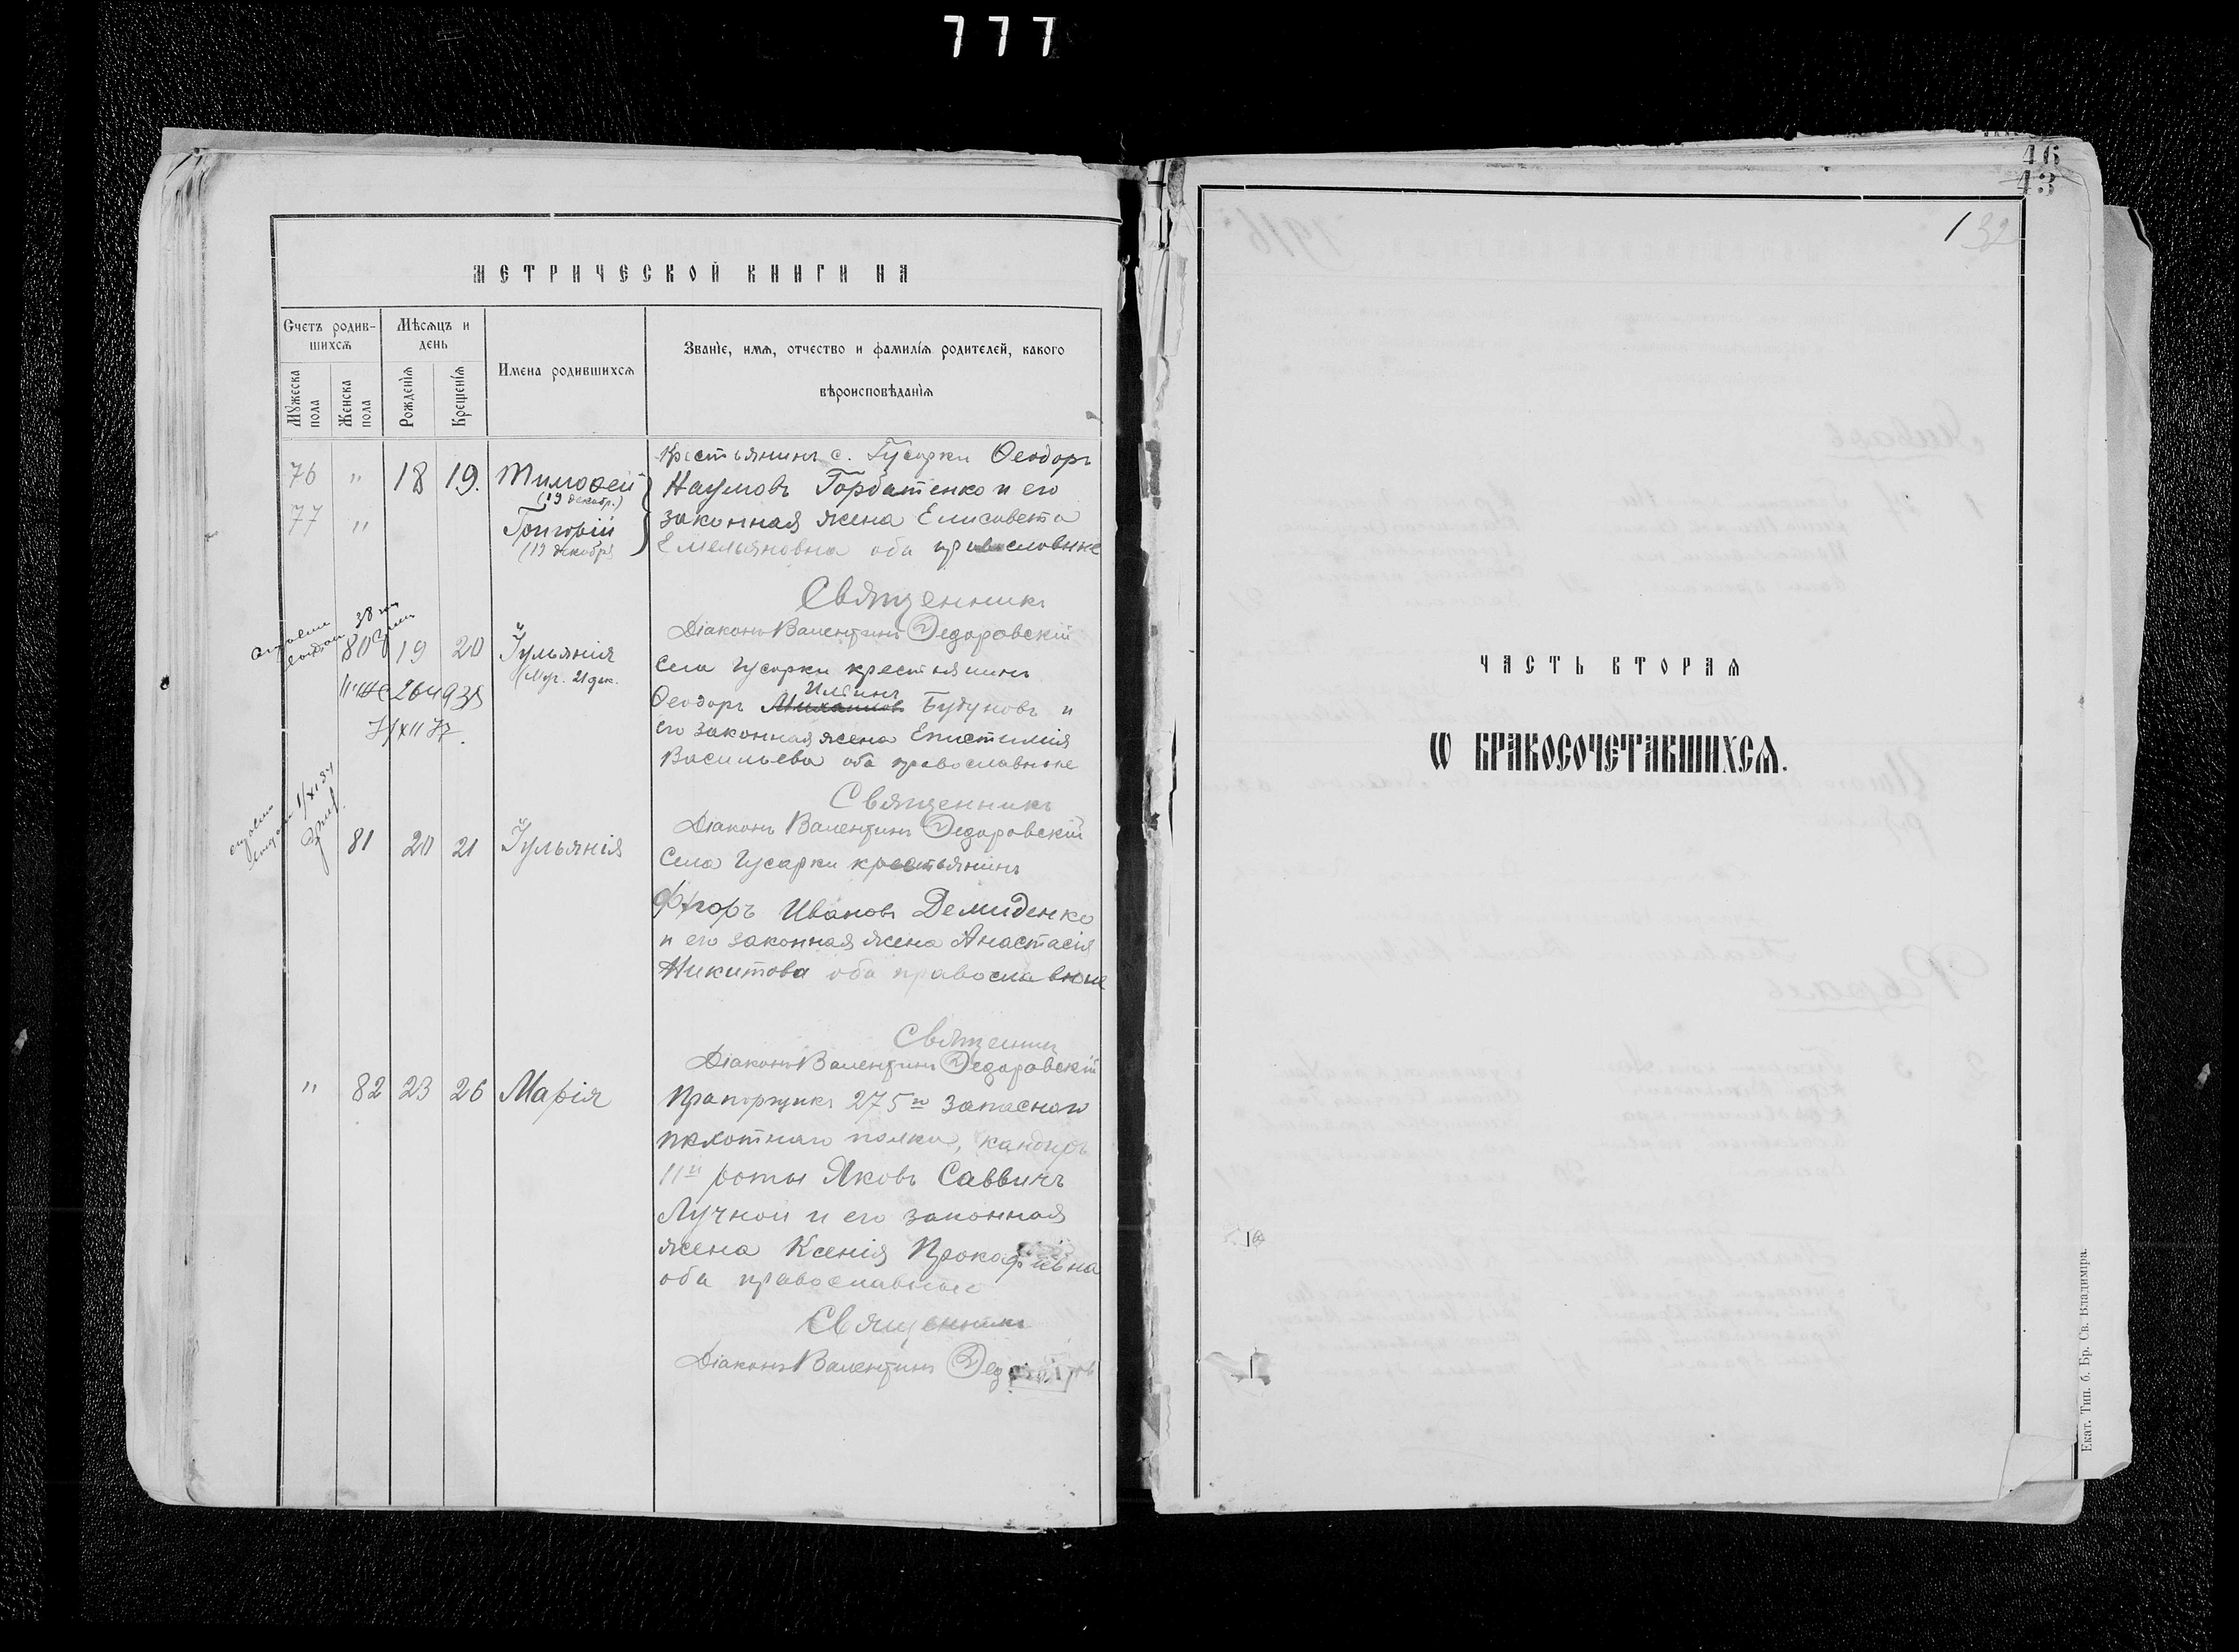 777
МЕТРИЧЕСКОЙ КНИГИ НА
Счетъ родив-
шихсѧ
Мѣсѧцъ и
день
Имена родившихсѧ
Званіе, имѧ, отчество и фамиліѧ родителей, какого
вѣроисповѣданіѧ
Мужеска
пола
Женска
пола
Рожденіѧ
Крещеніѧ
76 " 18 19. Тимоѳей
(19 декабр.)
77 " Григорій
(19 декабря
Крестьянинъ с. Гусарки Ѳеодоръ
Наумовъ Горбатенко и его
законная жена Елисавета
Емельяновна оба православные
Священникъ
Діаконъ Валентинъ Ѳедоровскій
80 19 20 Іульянія
(Муч. 21 дек.
Села Гусарки крестьянинъ
Ильинъ
Ѳеодоръ Михаиловъ Будуновъ и
его законная жена Епистимія
Васильева оба православные
Священникъ
Діаконъ Валентинъ Ѳедоровскій
81 20 21 Іульянія
Села Гусарки крестьянинъ
Флоръ Ивановъ Демиденко
и его законная жена Анастасія
Никитова оба православные
Священник
Діаконъ Валентинъ Ѳедоровскій
" 82 23 26 Марія
Прапорщикъ 275го запаснаго
пехотнаго полка,
11й роты Яковъ Саввинъ
Лучной и его законная
жена Ксенія Прокофіевна
оба православные
Священникъ
Діаконъ Валентинъ
46
43
132
ЧАСТЬ ВТОРАѦ
Ѡ БРАКОСОЧЕТАВШИХСѦ.
Екат. Тип. б. Бр. Св. Владиміра.